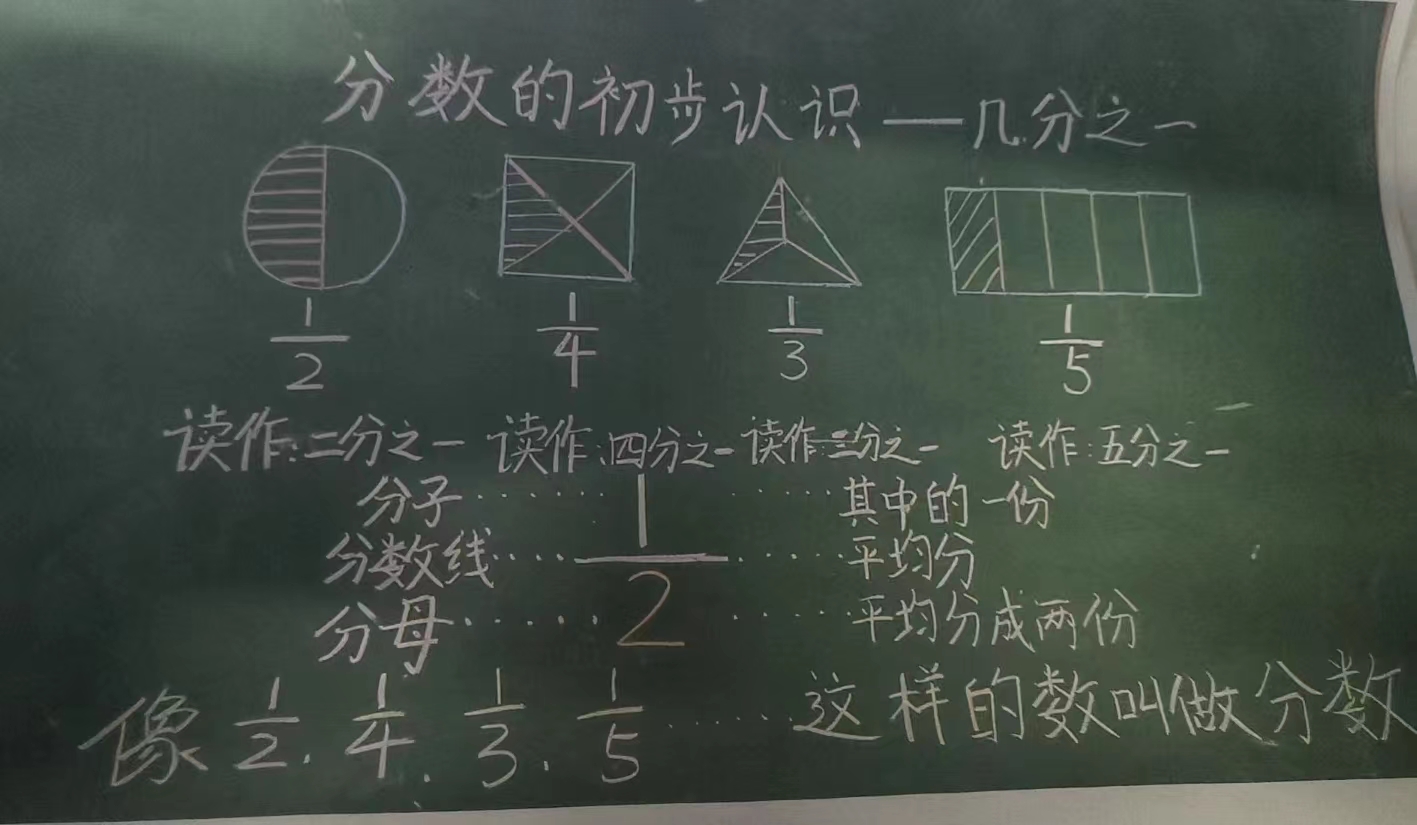 分数的初步认识——几分之一
1/2 1/4 1/3 1/5
读作:二分之一 读作:四分之一 读作:三分之一 读作:五分之一
分子······1······其中的一份
分数线······—······平均分
分母······2······平均分成两份
像1/2、1/4、1/3、1/5······这样的数叫做分数